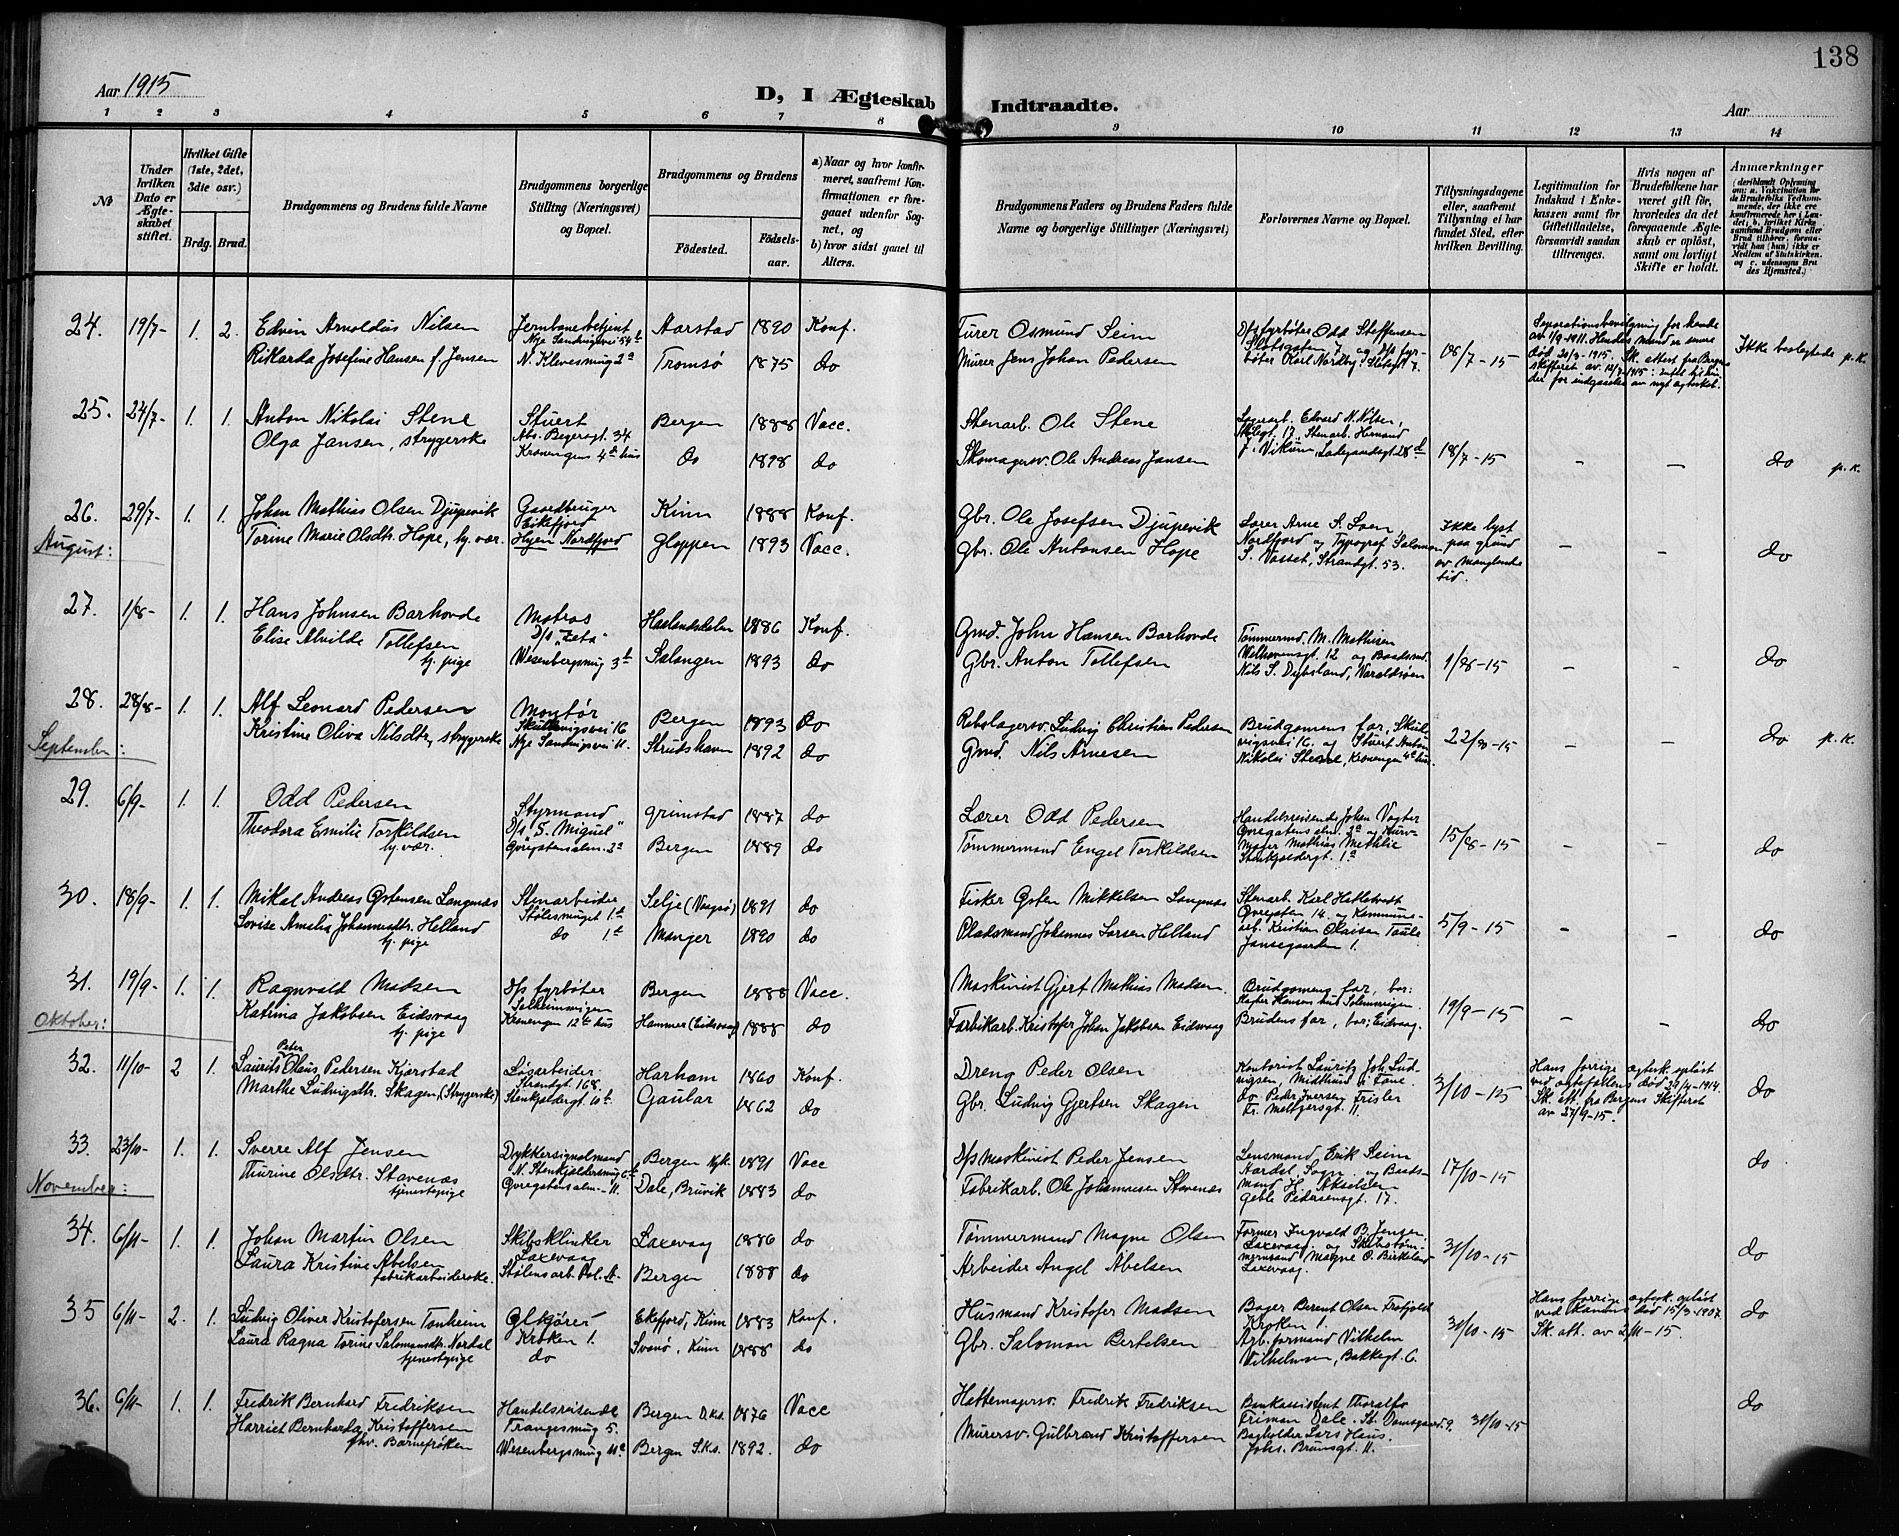 138
Aar 1915
D, I Ægteskab Indtraadte.
Aar
1 2 3 4 5 6 7 8 9 10 11 12 13 14
No
Under hvilken Dato er Ægteskabet stiftet.
Hvilket Gifte (1ste, 2det, 3die osv.)
Brdg. Brud.
Brudgommens og Brudens fulde Navne
Brudgommens borgerlige Stilling (Næringsvei) og Bopæl.
Brudgommens og Brudens
Fødested.
Fødselsaar.
a) Naar og hvor konfirmeret, saafremt Konfirmationen er foregaaet udenfor Sognet, og
b) hvor sidst gaaet til Alters.
Brudgommens Faders og Brudens Faders fulde Navne og borgerlige Stillinger (Næringsvei)
Forlovernes Navne og Bopæl.
Tillysningsdagene eller, saafremt Tillysning ei har fundet Sted, efter hvilken Bevilling.
Legitimation for Indskud i Enkekassen samt for Giftetilladelse, forsaavidt saadan tiltrænges.
Hvis nogen af Brudefolkene har været gift før, hvorledes da det foregaaende Ægteskab er opløst, samt om lovligt Skifte er holdt.
Anmærkninger
(deriblandt Oplysning om: a. Vakcination for de Brudefolks Vedkommende, der ikke ere konfirmerede her i Landet; b. hvilket Kirkesamfund Brudgom eller Brud tilhører, forsaavidt han (hun) ikke er Medlem af Statskirken, og c. udensogns Brudes Hjemsted.)
24. 19/7- 1. 2. Edvin Arnoldus Nilsen Jernbanebetjent Aarstad 1890 Konf. Osmund Seim D/s fyrbøter Odd Steffensen
Nye Sandvigsvei 54
Rikarda Josefine Hansen f. Jensen N. Klevesmug 2a Tromsø 1875 do Murer Jens Johan Pedersen Slotsgaten 7 og D/s fyrbøter Karl Nordby, Slotsgt 7. 18/7-15
Separationsbevilgning for hende av 1/9-1911. Hendes mand er senere død 1915. Sk. attest fra Bergens skifteret
Ikke beslegtede p.k.
25. 24/7- 1. 1. Anton Nikolai Stene Stuert Bergen 1888 Vacc. Stenarb. Ole Stene Edvard N. Nilsen,
Abs. Beyersgt. 34
Olga Jansen, strygerske Kroneng​ens 4de hus do 1898 do Skomagersv. Ole Andreas Jansen 17, Stenarb. Hermand J. Vikum, Ladegaardsgt 28 d 18/7-15 - - do p.k.
26. 29/7- 1. 1. Johan Mathias Olsen Djupevik Gaardbruger Kinn 1888 Konf. Gbr. Ole Josefsen Djupevik Lærer Arne S. Soen,
Eikefjord
Torine Marie Olsdtr. Hope, hj. vær. Hyen Nordfjord Gloppen 1893 Vacc. Gbr. Ole Antonsen Hope Nordfjord og Typograf Salomon S. Vasset, Strandgt. 53. Ikke lyst paa grund av manglende tid. - - do
August:
27. 1/8- 1. 1. Hans Johnsen Barhovde Matros 1886 Konf. Gmd. John Hansen Barhovde Tømmermd. M. Mathisen
D/s "Zeta"
Elise Alvilde Tollefsen hj. pige Wesenbergsmug 3 Salangen 1893 do Gbr. Anton Tollefsen Welhavensgt. 12 og Baadsmd. Nils S. Dybsland, Varaldsøen 1/8-15 - - do
28. 28/8- 1. 1. Alf Leonard Pedersen Montør Bergen 1893 do Rebslagersv. Ludvig Christian Pedersen Brudgomens far,
Skuteviksvei 16
Kristine Oliva Nilsdtr, strygerske Nye Sandvigsvei 11. Strudshavn 1892 do Gmd. Nils Arnesen 16. og Stuert Anton Nikolai Stene, Kronengen 4de hus. 22/8-15 - - do p.k.
September:
29. 6/9- 1. 1. Odd Pedersen Styrmand Grimstad 1887 do Lærer Odd Pedersen Handelsreisende Johan Vogter
D/s "S. Miguel"
Theodora Emilie Torkildsen hj. vær. Øvregatensalm. 2a Bergen 1889 do Tømmermand Engel Torkildsen Øvregatensalm. 2a og Kurvmager Mathias Methlie Stenkjeldergt. 1a 15/8-15 - - do
30. 18/9- 1. 1. Mikal Andreas Østensen Langenæs Stenarbeider Selje (Vaagsø) 1891 do Fisker Østen Mikkelsen Langenæs Stenarb. Karl Hatletvedt
Stølesmuget 1
Lovise Amalia Johannesdtr. Helland hj. pige do 1 Manger 1890 do Pladsmand Johannes Larsen Helland Øvregaten 14. og Kommunearb. Kristian Olaisen Taule Jansegaarden 1. 5/9-15 - - do
31. 19/9- 1. 1. Ragnvald Madsen D/s fyrbøter Bergen 1888 Vacc. Maskinist Gjert Mathias Madsen. Brudgomens far, bor:
Solheimsvigen
Katrina Jakobsen Eidsvaag hj. pige Kronengen 12te hus Hammer (Eidsvaag) 1888 do Farbikarb. Kristofer Johan Jakobsen Eidsvaag Brudens far, bor: Eidsvaag. 19/9-15 - - do
Oktober:
32. 11/10- 2 1. Laurits Peter Olaus Pedersen Kjørstad Løsarbeider Harham 1860 Konf. Dreng Peder Olsen Kontorist Lauritz Joh. Ludvigsen, Midthun i Fane.
Strandgt. 168.
Marthe Ludvigsdtr. Skagen, (Strygerske) Stenkjeldergt. 10 Gaular 1862 do Gbr. Ludvig Gjertsen Skagen do Peder Iversen Frisler Fr. Meltzersgt. 11. 3/10-15 Hans forrige egtesk. opløst ved egtefellens død 1914. Sk. att. fra Bergens Skifteret av 27/9-15. do
33. 23/10- 1. 1. Sverre Alf Jensen Dykkersignalmand Bergen Nyk. 1891 Vacc D/s Maskinist Peder Jensen Lensmand Erik Seim
N. Stenkjeldersmug 6
Thurine Olsdtr. Stavenæs tjenestepige Øvregatensalm. 11. Dale, Bruvik 1883 do Fabrikarb. Ole Johannesen Stavenæs Aardal, Sogn. og Baadsmand H. Akselsen Geble Pedersensgt. 17. 17/10-15 do
November:
34. 6/11- 1. 1. Johan Martin Olsen Skibsklinker Laxevaag 1886 do Tømmermand Magne Olsen Former Ingvald B. Jensen
Laxevaag
Laura Kristine Abelsen fabrikarbeiderske. Stølens arb. Bol. A. Bergen 1888 do Arbeider Angel Abelsen Laxevaag. og Skibstømmermand Magne O. Birkeland Laxevaag. 31/10-15 do
35 6/11- 2. 1. Ludvig Oliver Kristofersen Tonheim Ølkjører Ekefjord, Kinn 1883 Konf. Husmand Kristofer Madsen Bager Berent Olsen
Kroken 1.
Laura Ragna Torine Salomonsdtr. Nordal tjenestepige do Svanø, Kinn 1888 do Gbr. Salomon Bertelsen Kroken 1. Arb. formand Vilhelm Vilhelmsen, Bakkegt. 6. 31/10-15 Hans forrige egtesk. opløst ved konens død 15/3-1907. Sk. att. av 2/11-15. do
36. 6/11- 1. 1. Fredrik Bernhard Fredriksen Handelsreisende Bergen D.ks. 1876 Vacc Hattemagersv. Fredrik Fredriksen Bankassistent Thoralf
Trangesmug 5.
Harriet Bernharda Kristoffersen fhv. Barnefrøken Wesenbergsmug 11 Bergen S.ks. 1892. do Murersv. Gulbrand Kristoffersen Friman Dale. St. Damsgaard 9. Bagholder Lars Haus. Johs. Brunsgt. 11. 31/10-15 do